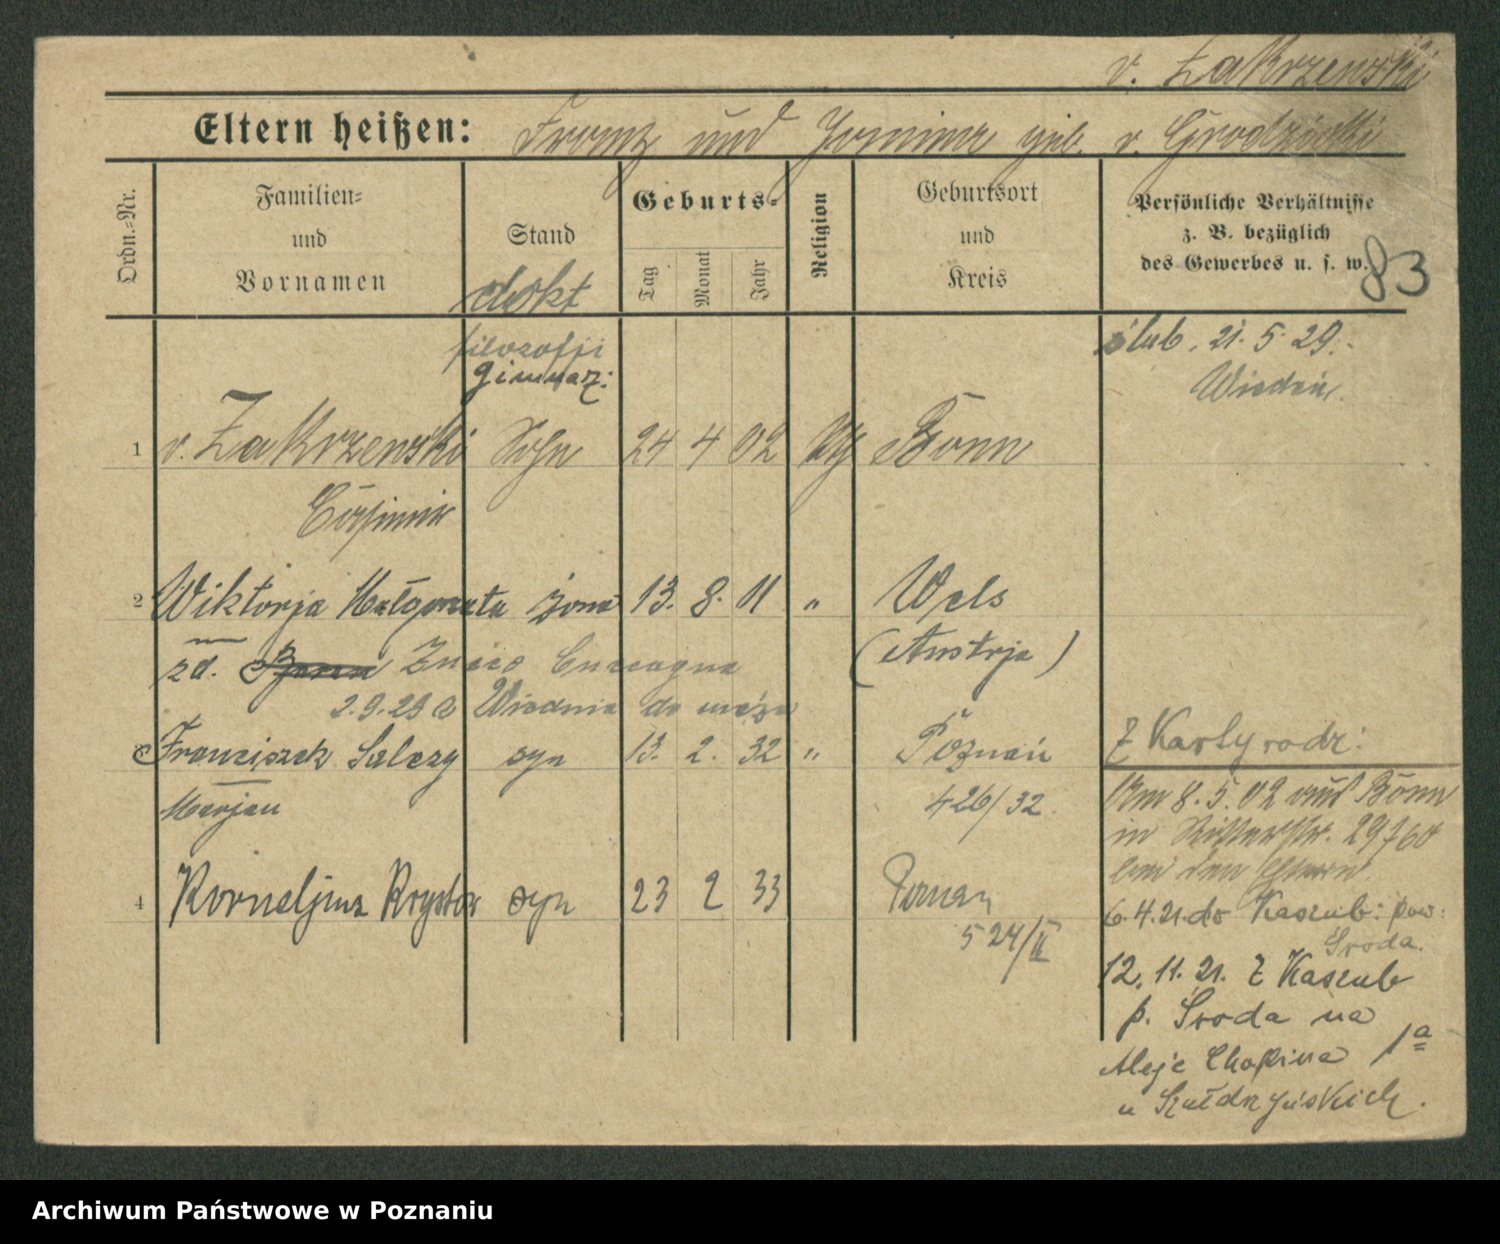 v. Zakrzewski
Eltern heißen: Franz und Janina geb. v. Grodzicki
Ordn.-Nr.
Familien-
und
Vornamen
Stand
dokt
filozofji
gimnaz:
Geburts-
Tag
Monat
Jahr
Religion
Geburtsort
und
Kreis
Persönliche Verhältnisse
z. B. bezüglich
des Gewerbes u. s. w.
83
ślub. 21. 5. 29.
Wiedeń.
1 v. Zakrzewski Sohn 24 4 02 kth Bonn
Casimir
2 Wiktorja Małgorzata żona 13. 8. 11 " Wels
(Austrja)
zd.
2.9.29 z Wiednia do męża
Franciszek Salezy syn 13. 2. 32 " Poznań
Marjan 426/32
4 Korneljusz syn 23 2 33 Poznań
524/II
Z Karty rodz:
Am 8. 5. 02 aus Bonn
in Ritterstr. 29
bei den Eltern
6.4.21. do Kaszub: pow:
Środa.
12. 11. 21. Z Kaszub
p. Środa na
Aleje Chopina 1a
u Szułdrzyńskich.
Archiwum Państwowe w Poznaniu